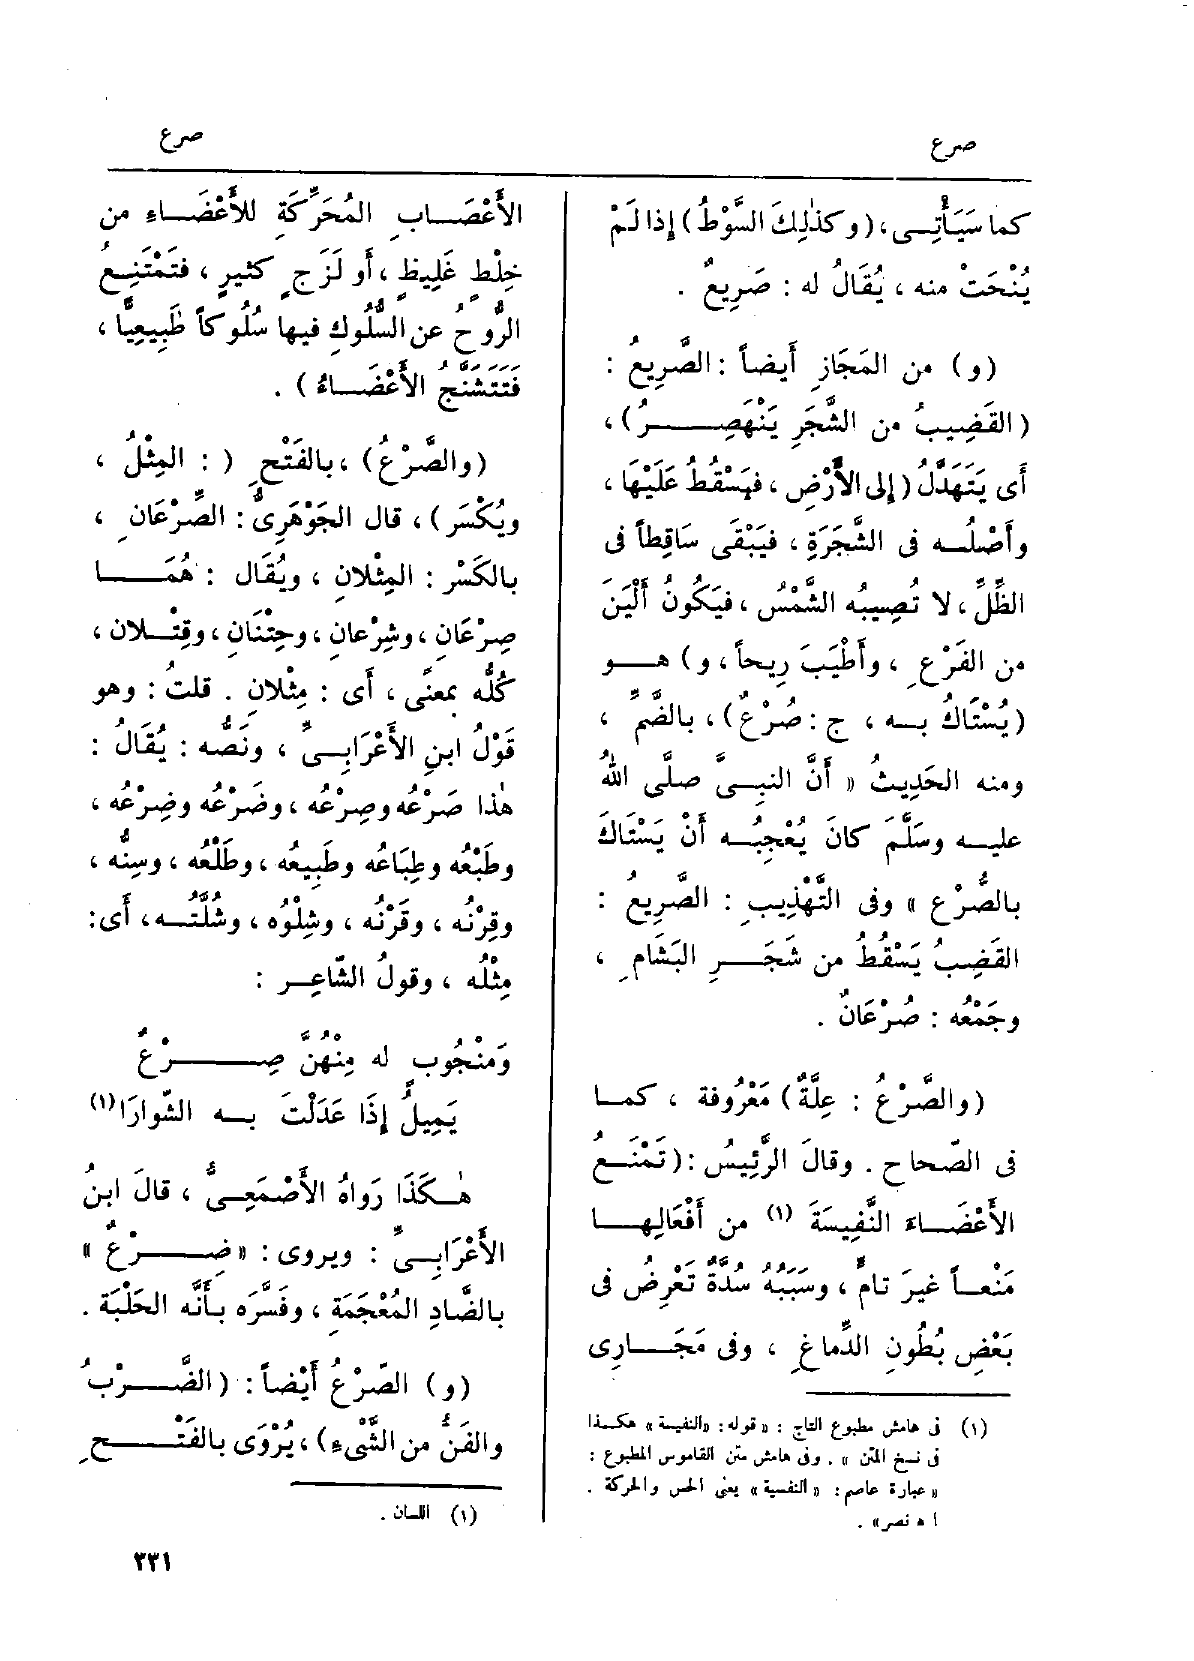 صرع
صرع
كما سَيَأْتِى، (وكذٰلِكَ السَّوْطُ) إذا لَمْ
يُنْحَتْ منه ، يُقَالُ له : صَرِيعٌ .
(و) من المَجَازِ أَيضاً : الصَّرِيعُ :
(القَضِيبُ من الشَّجَرِ يَنْهَصِرُ) ،
أَى يَتَهَدَّلُ (إلى الأَرْضِ ، فيَسْقُطُ عَلَيْهَا ،
وأَصْلُه فى الشَّجَرَةِ ، فيَبْقَى سَاقِطاً فى
الظِّلِّ ، لا تُصِيبُه الشَّمْسُ ، فيَكُونُ أَلْيَنَ
من الفَرْعِ ، وأَطْيَبَ رِيحاً ، و) هو
(يُسْتَاكُ به ، ج : صُرْعٌ) ، بالضَّمِّ ،
ومنه الحَدِيثُ « أَنَّ النبِىَّ صلَّى اللهُ
عليه وسَلَّمَ كانَ يُعْجِبُه أَنْ يَسْتَاكَ
بالصُّرْعِ » وفى التَّهْذِيبِ : الصَّرِيعُ :
القَضِيبُ يَسْقُطُ من شَجَرِ البَشَامِ ،
وجَمْعُه : صُرْعَانٌ .
(والصَّرْعُ : عِلَّةٌ) مَعْرُوفة ، كما
فى الصّحاح . وقالَ الرَّئِيسُ : (تَمْنَعُ
الأَعْضَاءَ النَّفِيسَةَ (١) من أَفْعَالِها
مَنْعاً غيرَ تامٍّ ، وسَبَبُهُ سُدَّةٌ تَعْرِضُ فى
بَعْضِ بُطُونِ الدِّماغِ ، وفى مَجَارِى
(١) فى هامش مطبوع التاج : « قوله : «النفيسة» هكذا
فى نسخ المتن » . وفى هامش متن القاموس المطبوع :
« عبارة عاصم : «النفسية» يعنى الحس والحركة .
ا ه نصر» .
الأَعْصَابِ المُحَرِّكَةِ للأَعْضَاءِ من
خِلْطٍ غَلِيظٍ ، أَو لَزَجٍ كثيرٍ ، فتَمْتَنِعُ
الرُّوحُ عن السُّلُوكِ فيها سُلُوكاً طَبِيعِيًّا ،
فَتَتَشَنَّجُ الأَعْضَاءُ) .
(والصَّرْعُ) ، بالفَتْحِ ( : المِثْلُ ،
ويُكْسَر) ، قال الجَوْهَرِىُّ : الصِّرْعَانِ ،
بالكَسْرِ : المِثْلانِ ، ويُقَال : هُمَا
صِرْعَانِ ، وشِرْعانِ ، وحِتْنَانِ ، وقِتْلان ،
كُلُّه بمعنًى ، أَى : مِثْلانِ . قلتُ : وهو
قَوْلُ ابنِ الأَعْرَابِىِّ ، ونَصُّه : يُقَالُ :
هٰذا صَرْعُه وصِرْعُه ، وضَرْعُه وضِرْعُه ،
وطَبْعُه وطِبَاعُه وطَبِيعُه ، وطَلْعُه ، وسِنُّه ،
وقِرْنُه ، وقَرْنُه ، وشِلْوُه ، وشُلَّتُه ، أَى :
مِثْلُه ، وقولُ الشّاعِرِ :
وَمَنْجُوبٍ له مِنْهُنَّ صِرْعٌ
يَمِيلُ إِذَا عَدَلْتَ به الشّوارَا (١)
هٰكَذَا رَواهُ الأَصْمَعِىُّ ، قالَ ابنُ
الأَعْرَابِىِّ : ويروى : «ضِرْعٌ»
بالضَّادِ المُعْجَمَةِ ، وفَسَّرَه بأَنَّه الحَلْبَة .
(و) الصّرْعُ أَيْضاً : (الضَّرْبُ
والفَنُّ من الشَّىءِ) ، يُرْوَى بالفَتْحِ
(١) اللسان .
٣٣١